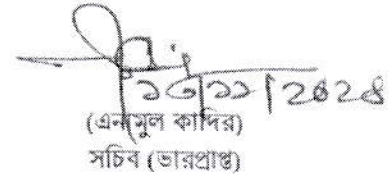 ১৩|১১|২০২৪
(এনামুল কাদির)
সচিব (ভারপ্রাপ্ত)